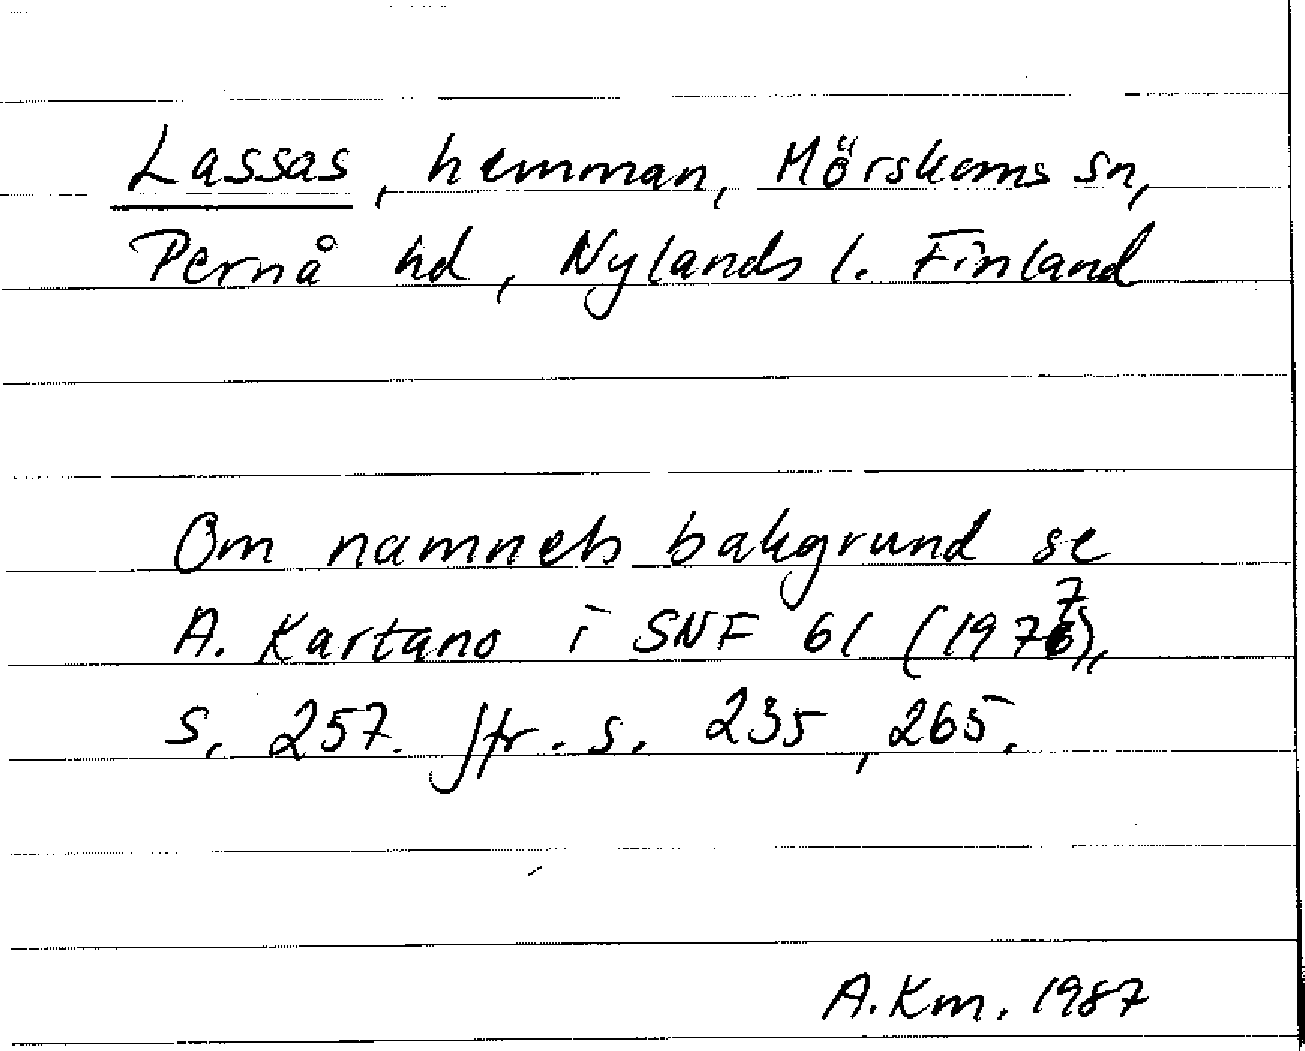 Lassas, hemman, Mörskoms sn,
Pernå hd, Nylands l. Finland
Om namnets bakgrund se
A. Kartano i SNF 61 (1977),
s. 257. Jfr. s. 235, 265.
A.Km. 1987